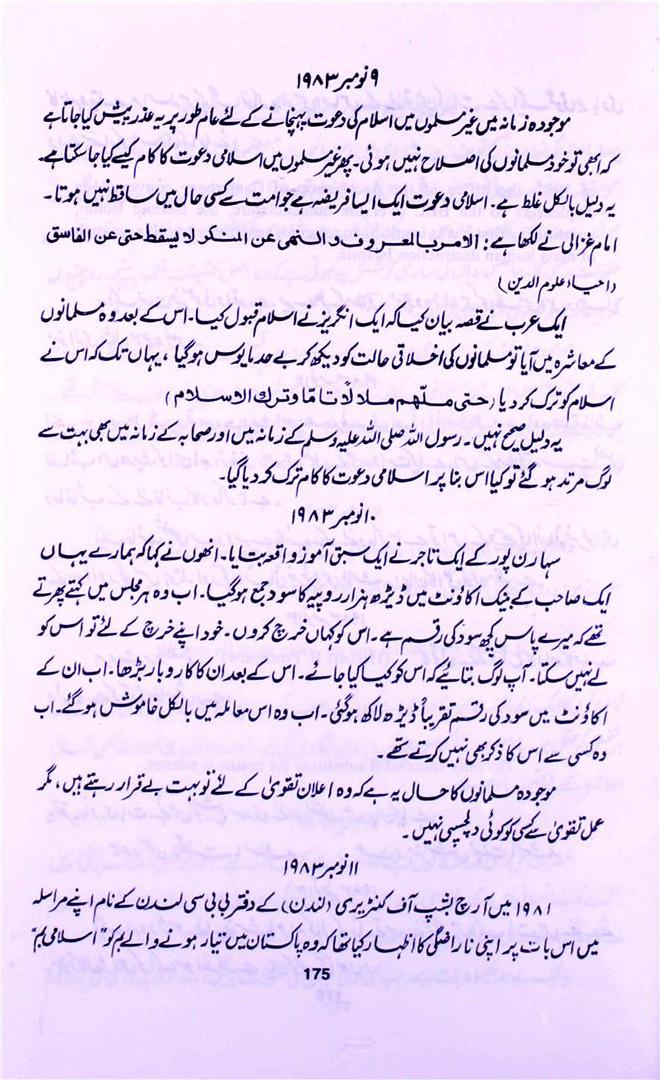 ۹ نومبر ۱۹۸۳
موجودہ زمانہ میں غیر مسلموں میں اسلام کی دعوت پہنچانے کے لئے عام طور پر یہ عذر پیش کیا جاتا ہے
کہ ابھی تو خود مسلمانوں کی اصلاح نہیں ہوئی۔ پھر غیر مسلموں میں اسلامی دعوت کا کام کیسے کیا جا سکتا ہے۔
یہ دلیل بالکل غلط ہے۔ اسلامی دعوت ایک ایسا فریضہ ہے جو امت سے کسی حال میں ساقط نہیں ہوتا۔
امام غزالی نے لکھا ہے: الامر بالمعروف والنهی عن المنکر لا یسقط حتی عن الفاسق
(احیاء علوم الدین)
ایک عرب نے قصہ بیان کیا کہ ایک انگریز نے اسلام قبول کیا۔ اس کے بعد وہ مسلمانوں
کے معاشرہ میں آیا تو مسلمانوں کی اخلاقی حالت کو دیکھ کر بے حد مایوس ہو گیا، یہاں تک کہ اس نے
اسلام کو ترک کر دیا (حتی ملّهم ملالًا تامًا وترك الاسلام)
یہ دلیل صحیح نہیں۔ رسول اللہ صلی اللہ علیہ وسلم کے زمانہ میں اور صحابہ کے زمانہ میں بھی بہت سے
لوگ مرتد ہو گئے تو کیا اس بنا پر اسلامی دعوت کا کام ترک کر دیا گیا۔
۱۰ نومبر ۱۹۸۳
سہارن پور کے ایک تاجر نے ایک سبق آموز واقعہ بتایا۔ انھوں نے کہا کہ ہمارے یہاں
ایک صاحب کے بینک اکاؤنٹ میں ڈیڑھ ہزار روپیہ کا سود جمع ہو گیا۔ اب وہ ہر مجلس میں کہتے پھرتے
تھے کہ میرے پاس کچھ سود کی رقم ہے۔ اس کو کہاں خرچ کروں۔ خود اپنے خرچ کے لئے تو اس کو
لے نہیں سکتا۔ آپ لوگ بتائیے کہ اس کو کیا کیا جائے۔ اس کے بعد ان کا کاروبار بڑھا۔ اب ان کے
اکاؤنٹ میں سود کی رقم تقریباً ڈیڑھ لاکھ ہو گئی۔ اب وہ اس معاملہ میں بالکل خاموش ہو گئے۔ اب
وہ کسی سے اس کا ذکر بھی نہیں کرتے تھے۔
موجودہ مسلمانوں کا حال یہ ہے کہ وہ اعلان تقویٰ کے لئے تو بہت بے قرار رہتے ہیں، مگر
عمل تقویٰ سے کسی کو کوئی دلچسپی نہیں۔
۱۱ نومبر ۱۹۸۳
۱۹۸۱ میں آرچ بشپ آف کنٹربری (لندن) کے دفتر بی بی سی لندن کے نام اپنے مراسلہ
میں اس بات پر اپنی ناراضگی کا اظہار کیا تھا کہ وہ پاکستان میں تیار ہونے والے بم کو "اسلامی بم"
175